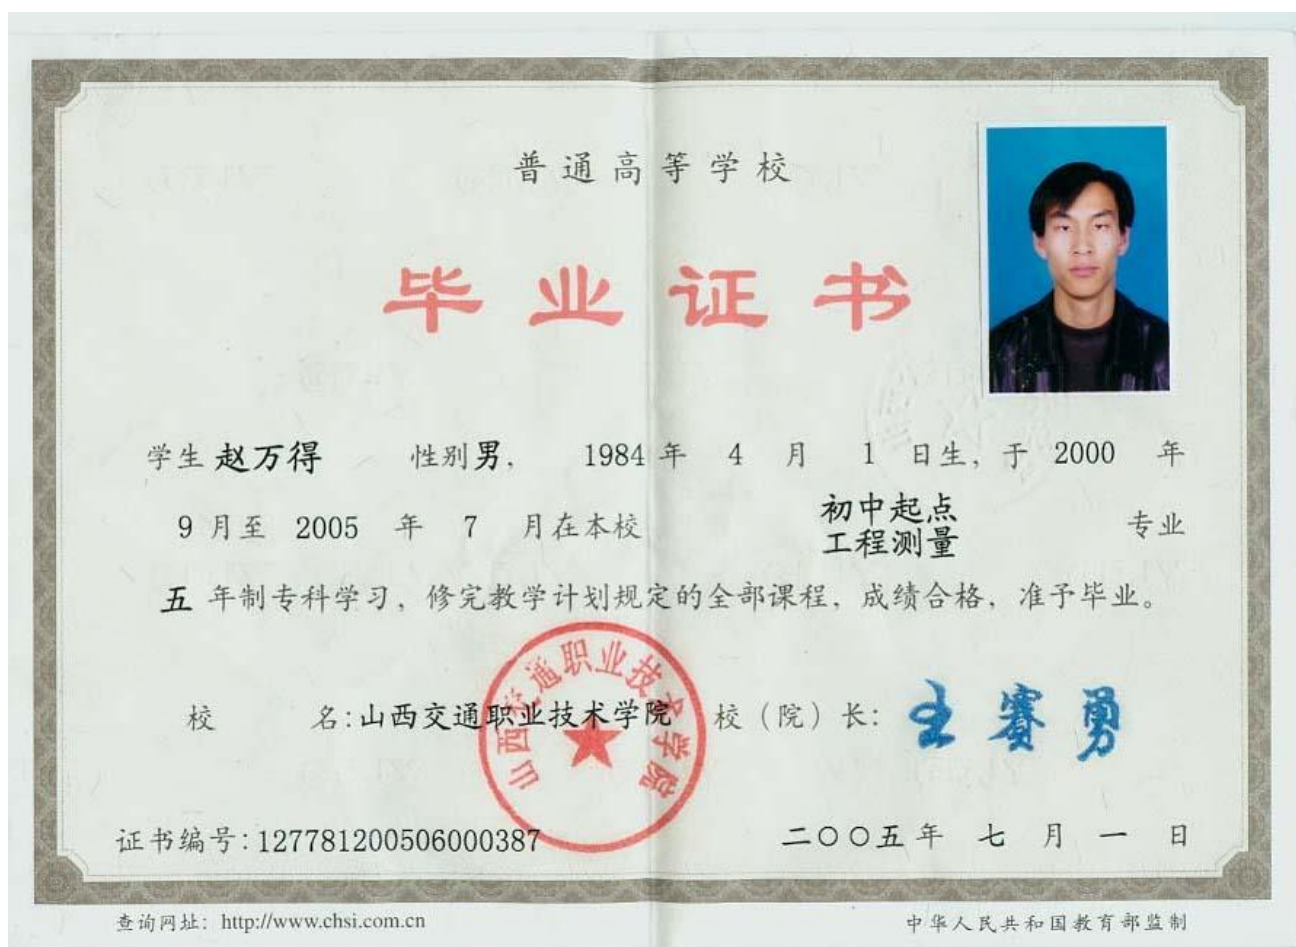 普通高等学校
毕业证书
学生 赵万得 性别 男, 1984 年 4 月 1 日生, 于 2000 年
9 月至 2005 年 7 月在本校 初中起点 工程测量 专业
五 年制专科学习, 修完教学计划规定的全部课程, 成绩合格, 准予毕业。
山西交通职业技术学院
校 名: 山西交通职业技术学院 校（院）长: 王赛勇
证书编号: 127781200506000387 二〇〇五年 七 月 一 日
查询网址: http://www.chsi.com.cn 中华人民共和国教育部监制